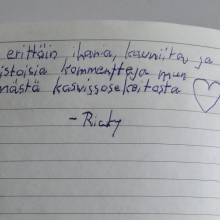 erittäin ihania, kauniita ja
istoisia kommentteja mun
ästä kasvissosekeitosta
- Ricky